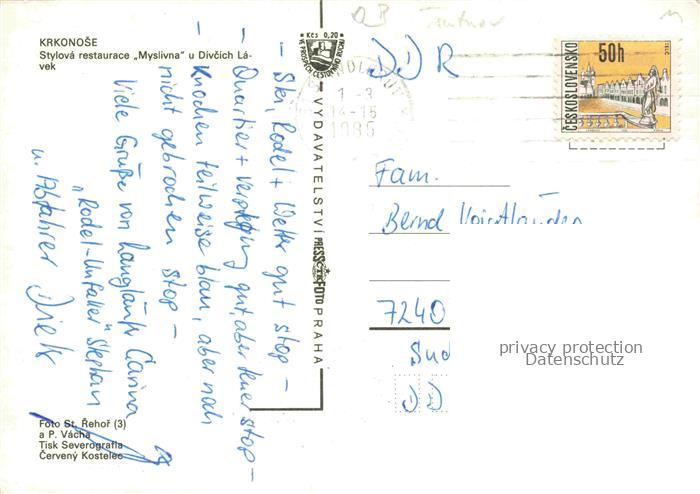 KRKONOŠE
Stylová restaurace „Myslivna" u Dívčích Lá-
vek
Kčs 0,20
VE PROSPĚCH CESTOVNÍHO RUCHU
VYDAVATELSTVÍ PRESSFOTO PRAHA
- Ski, Rodel + Wetter gut stop -
- Quartier + Verpflegung gut, aber teuer stop -
- Knochen teilweise blau, aber noch
nicht gebrochen stop -
Viele Grüße von Langläufer Carina
„Rodel-Unfaller" Stephan
u. Abfahrer Dirk
Foto St. Řehoř (3)
a P. Vácha
Tisk Severografia
Červený Kostelec
1986
ČESKOSLOVENSKO
50h
TELČ
DDR
Fam.
Bernd Voigtländer
7240
DD
privacy protection
Datenschutz